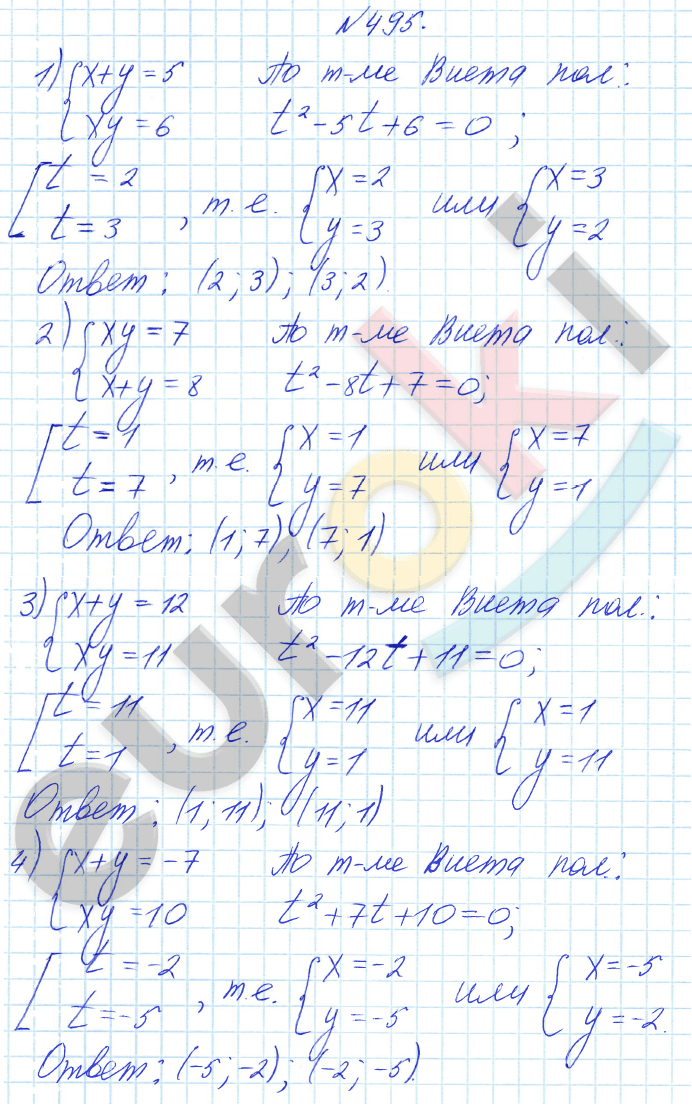 №495.
1) { x+y=5 По т-ме Виета пол.:
xy=6 t²-5t+6=0;
[ t=2
t=3, т.е. { x=2 y=3 или { x=3 y=2
Ответ: (2;3); (3;2).
2) { xy=7 По т-ме Виета пол.:
x+y=8 t²-8t+7=0;
[ t=1
t=7, т.е. { x=1 y=7 или { x=7 y=1
Ответ: (1;7); (7;1)
3) { x+y=12 По т-ме Виета пол.:
xy=11 t²-12t+11=0;
[ t=11
t=1, т.е. { x=11 y=1 или { x=1 y=11
Ответ: (1;11); (11;1)
4) { x+y=-7 По т-ме Виета пол.:
xy=10 t²+7t+10=0;
[ t=-2
t=-5, т.е. { x=-2 y=-5 или { x=-5 y=-2.
Ответ: (-5;-2); (-2;-5).
euroki